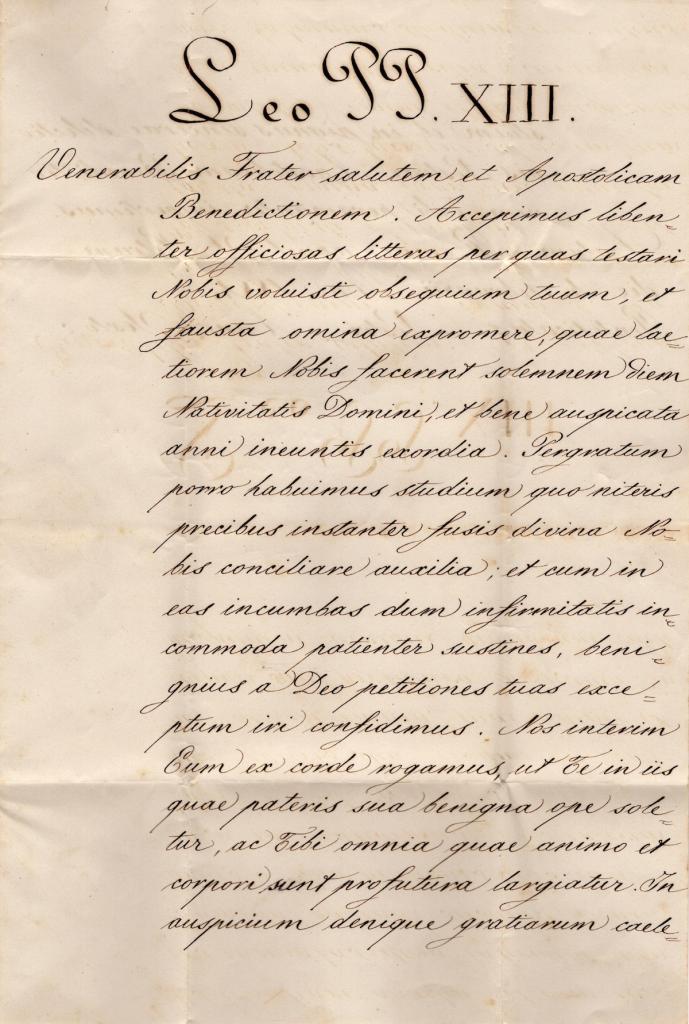 Leo PP. XIII.
Venerabilis Frater salutem et Apostolicam
Benedictionem. Accepimus liben=
ter officiosas litteras per quas testari
Nobis voluisti obsequium tuum, et
fausta omina expromere, quae lae=
tiorem Nobis facerent solemnem diem
Nativitatis Domini, et bene auspicata
anni ineuntis exordia. Pergratum
porro habuimus studium quo niteris
precibus instanter fusis divina No=
bis conciliare auxilia; et cum in
eas incumbas dum infirmitatis in=
commoda patienter sustines, beni=
gnius a Deo petitiones tuas exce=
ptum iri confidimus. Nos interim
Eum ex corde rogamus, ut Te in iis
quae pateris sua benigna ope sole=
tur, ac Tibi omnia quae animo et
corpori sunt profutura largiatur. In
auspicium denique gratiarum caele=